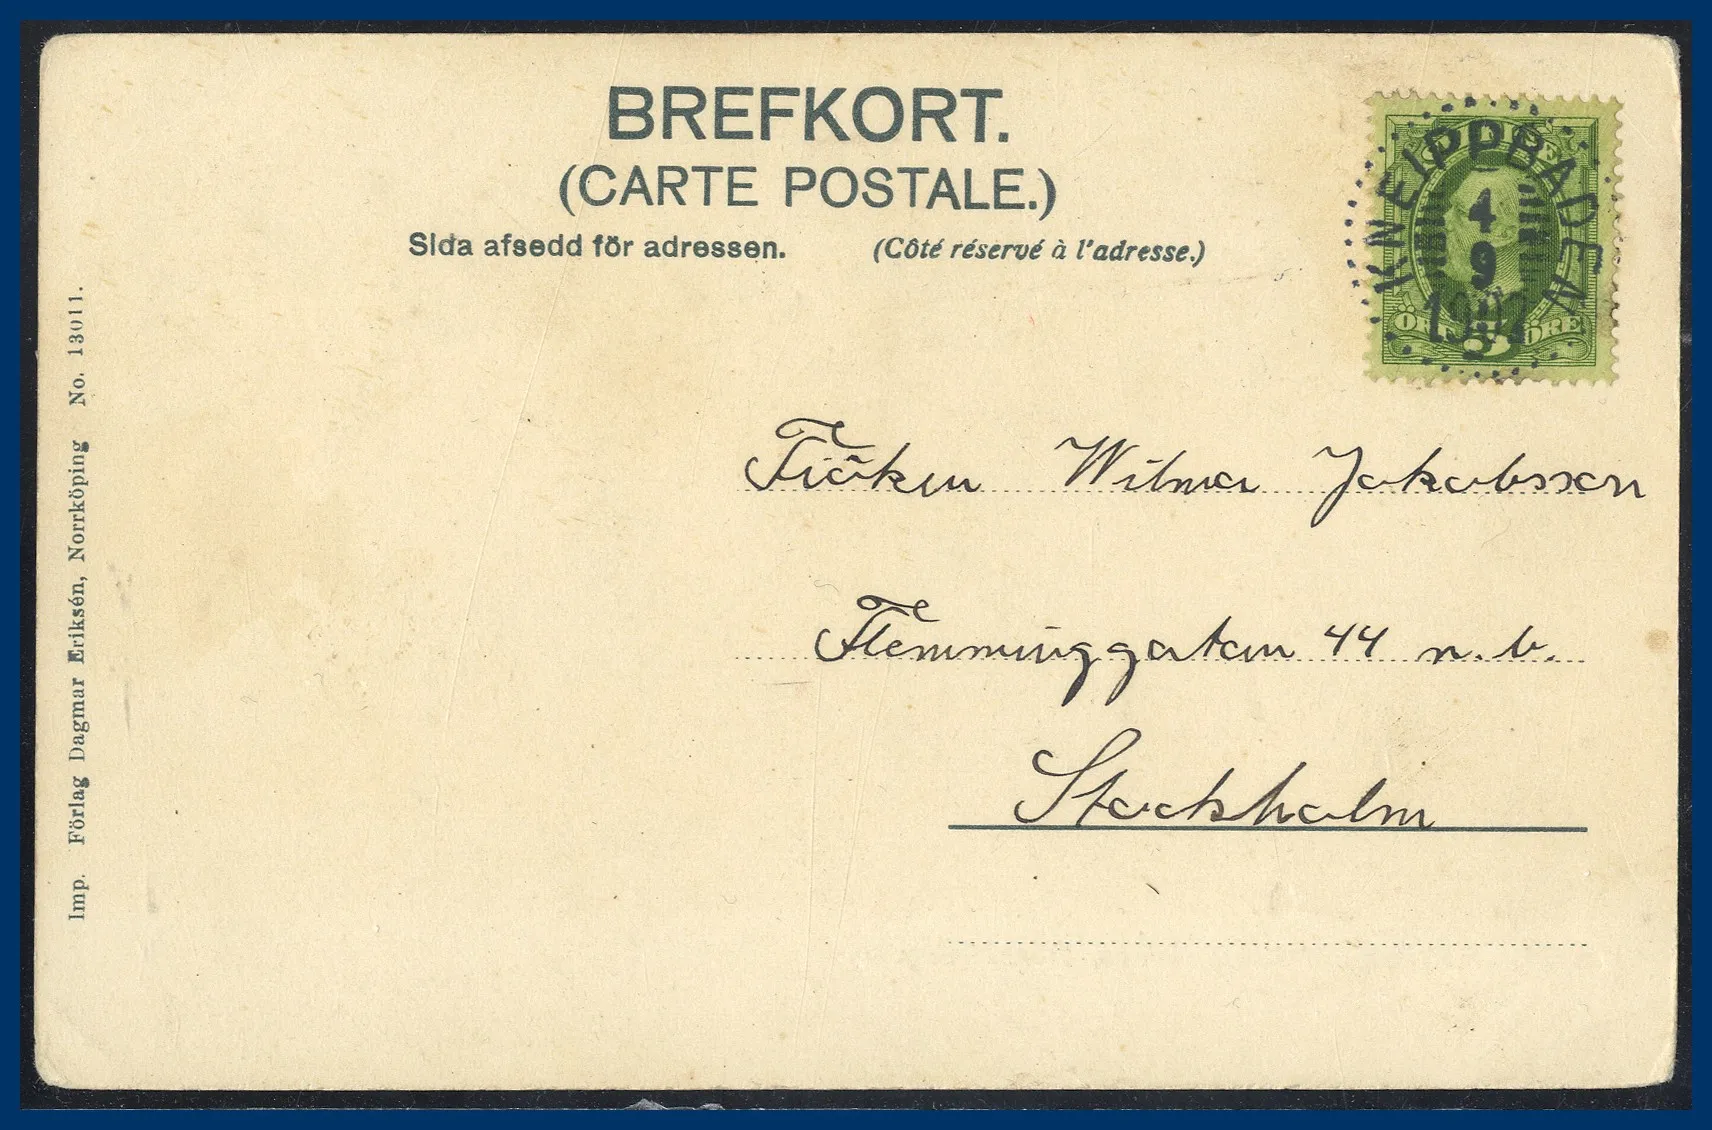 BREFKORT.
(CARTE POSTALE.)
Sida afsedd för adressen. (Côté réservé à l'adresse.)
KNEIPPBADEN
4
9
1902
ÖRE 5 ÖRE
Fröken Wilma Jakobsson
Flemminggatan 44 n. b.
Stockholm
Imp. Förlag Dagmar Eriksén, Norrköping No. 13011.